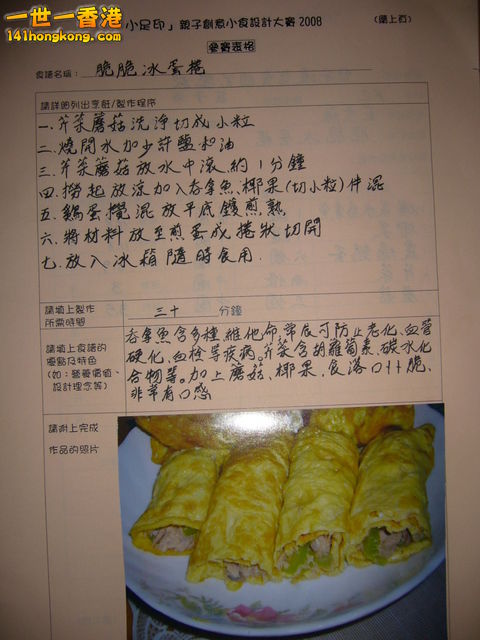 一世一香港
141hongkong.com
小足印」親子創意小食設計大賽 2008
(續上頁)
參賽表格
食譜名稱: 脆脆冰蛋捲
請詳細列出烹飪/製作程序
一. 芹菜蘑菇洗淨切成小粒
二. 燒開水加少許鹽和油
三. 芹菜蘑菇放水中滾約1分鐘
四. 撈起放涼加入吞拿魚,椰果(切小粒)伴混
五. 鷄蛋攪混放平底鑊煎熟
六. 將材料放至煎蛋成捲狀切開
七. 放入冰箱隨時食用.
請填上製作
所需時間
三十 分鐘
請填上食譜的
優點及特色
(如:營養價值、
設計理念等)
吞拿魚含多種維他命,常食可防止老化、血管
硬化、血栓等疾病。芹菜含胡蘿蔔素、碳水化
合物等。加上蘑菇、椰果,食落口卜卜脆、
非常有口感
請附上完成
作品的照片